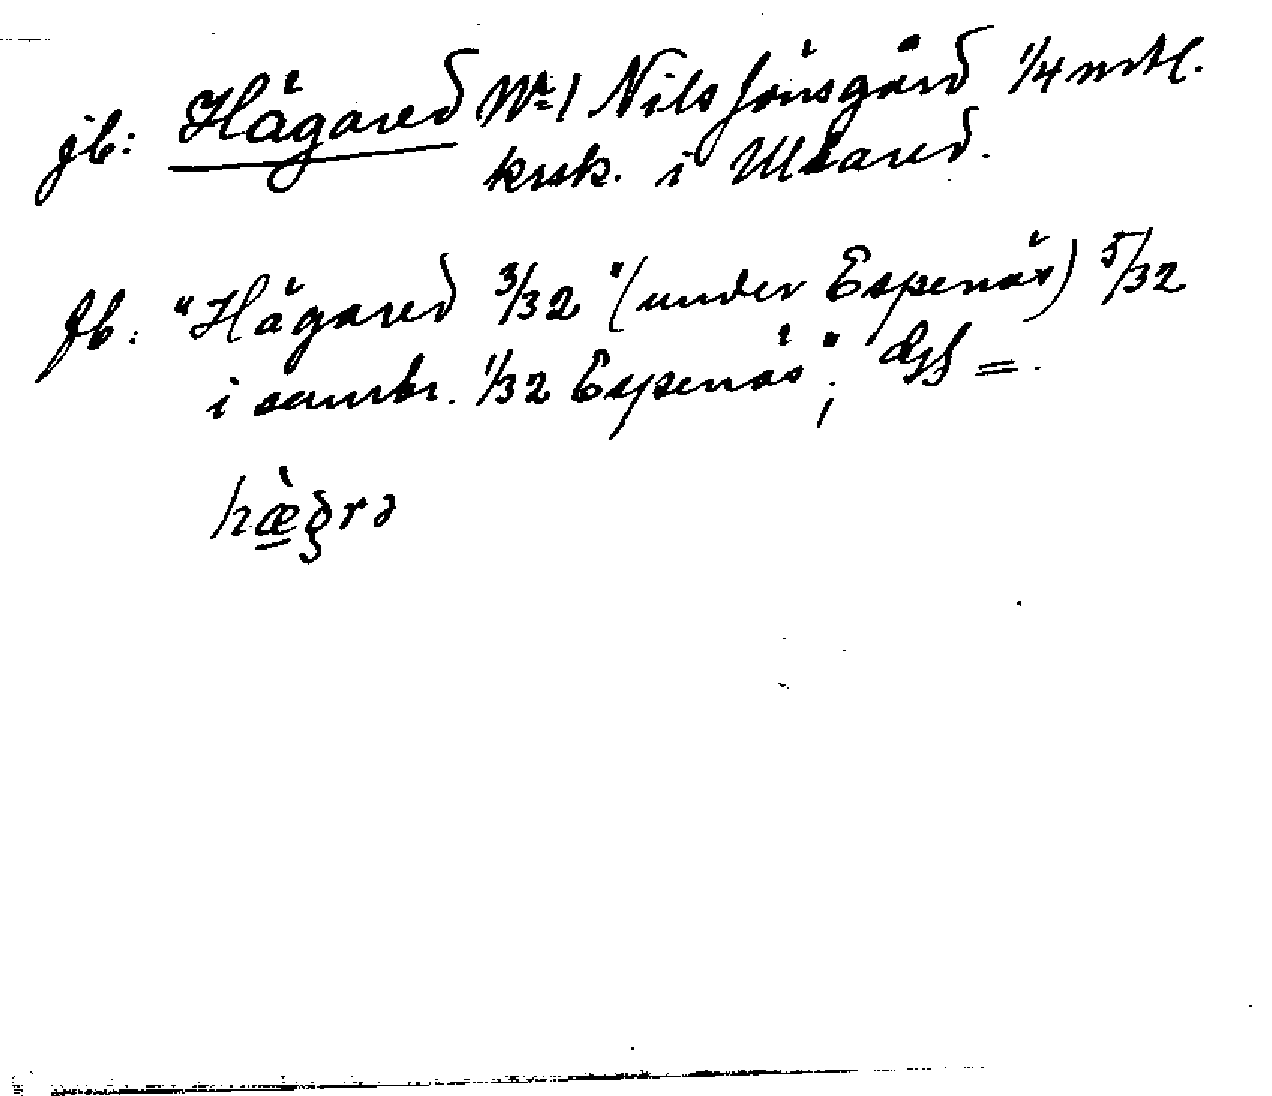 jb: Hägared No 1 Nils Jönsgård 1/4 mtl.
krsk. i Ullared.
fb: "Hägared 3/32" (under Espenäs) 5/32
i sambr. 1/32 Espenäs";  =.
hæ̀grə